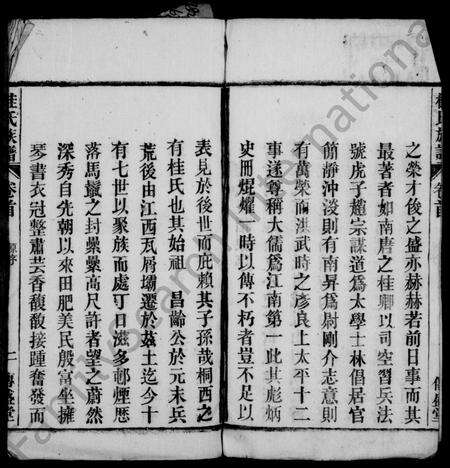 桂氏族譜
卷首
傳盛堂
之榮才俊之盛亦赫赫若前日事而其
最著者如南唐之桂卿以司空習兵法
號虎子超宗謀道爲太學士林倡居官
簡靜沖淡則有南昇爲尉剛介志意則
有萬榮而洪武時之彥良上太平十二
事遂尊稱大儒爲江南第一此其彪炳
史冊焜燿一時以傳不朽者豈不足以
表見於後世而庇賴其子孫哉桐西之
有桂氏也其始祖 昌齡公於元末兵
荒後由江西瓦屑壩遷於茲土迄今十
有七世以聚族而處可日滋多邨煙歷
落馬鬣之封纍纍高尺許者望之蔚然
深秀自先朝以來田肥美民殷富坐擁
琴書衣冠整肅芸香馥馥接踵奮發而
桂氏族譜
卷首
二
傳盛堂
FamilySearch International